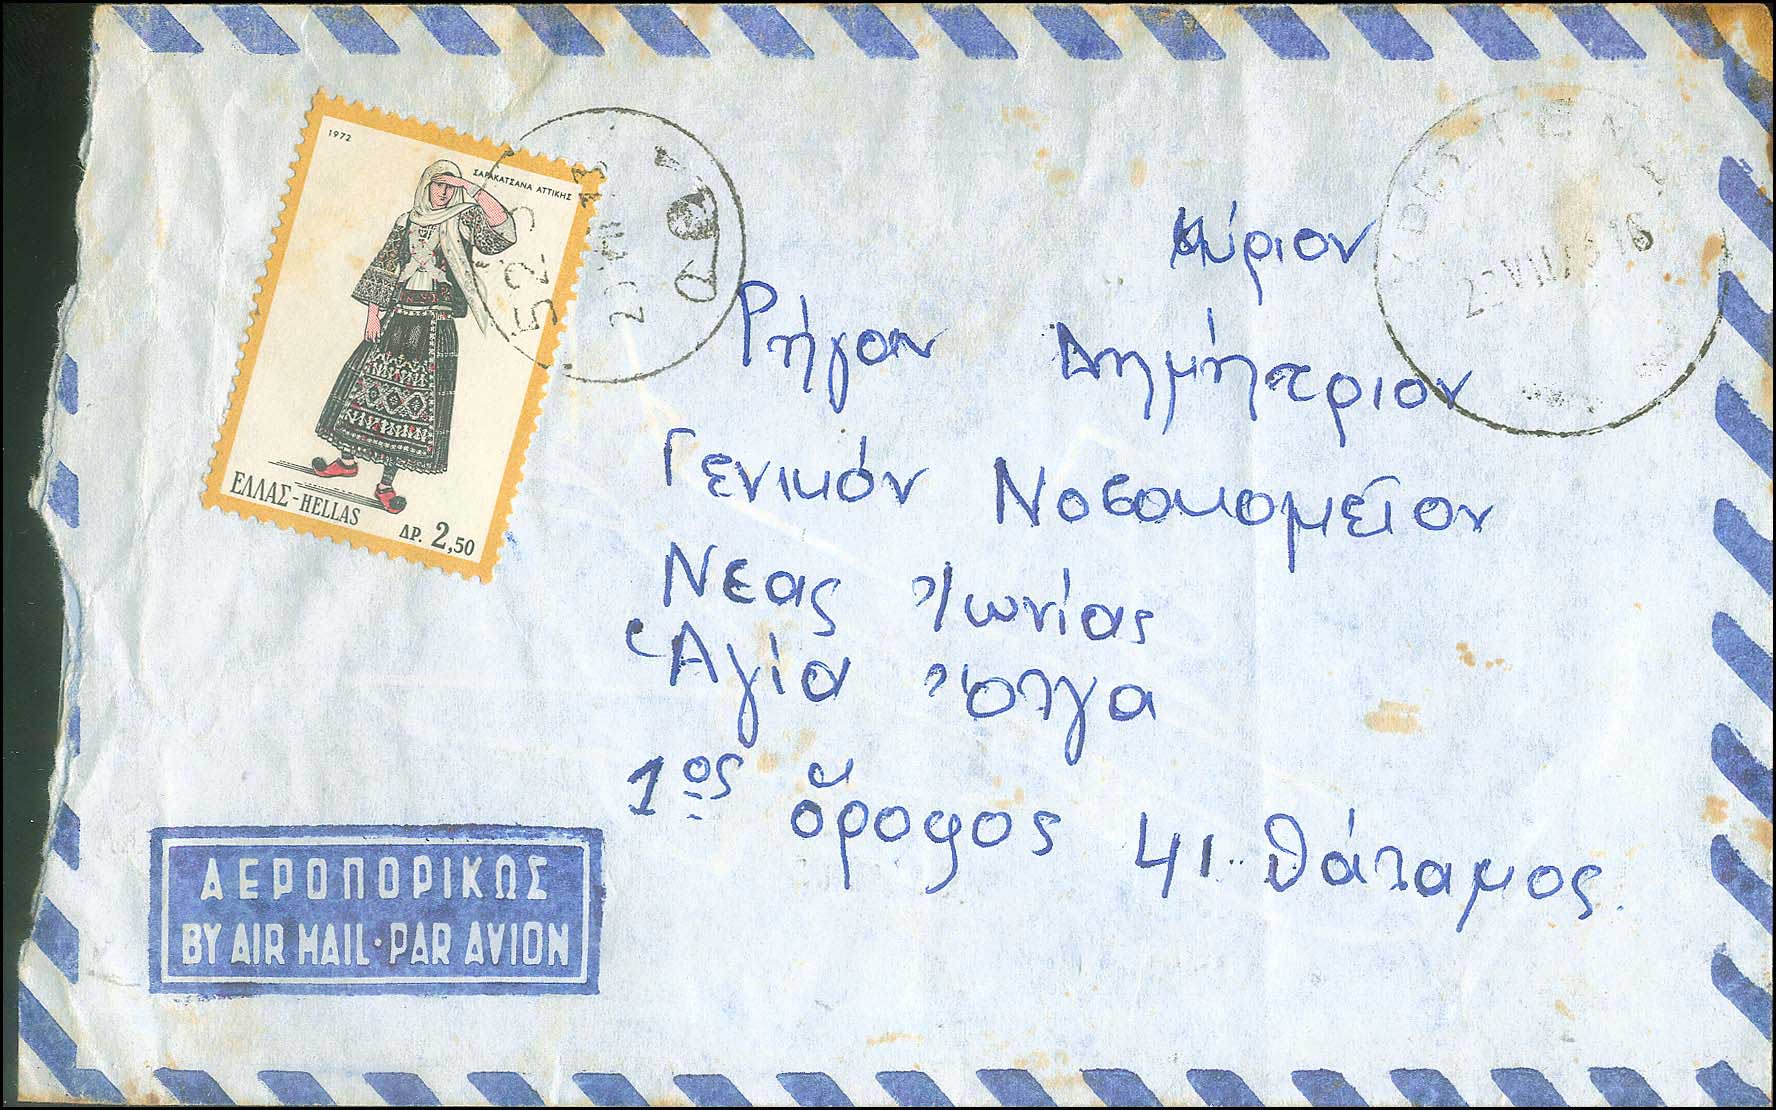 1972
ΣΑΡΑΚΑΤΣΑΝΑ ΑΤΤΙΚΗΣ
ΕΛΛΑΣ-HELLAS
ΔΡ. 2,50
525
Κύριον
Ρήγαν Δημήτριον
Γενικόν Νοσοκομεῖον
Νεας Ἰωνίας
Ἁγία Ὄλγα
1ος ὄροφος 41 θάλαμος
ΑΕΡΟΠΟΡΙΚΩΣ
BY AIR MAIL·PAR AVION